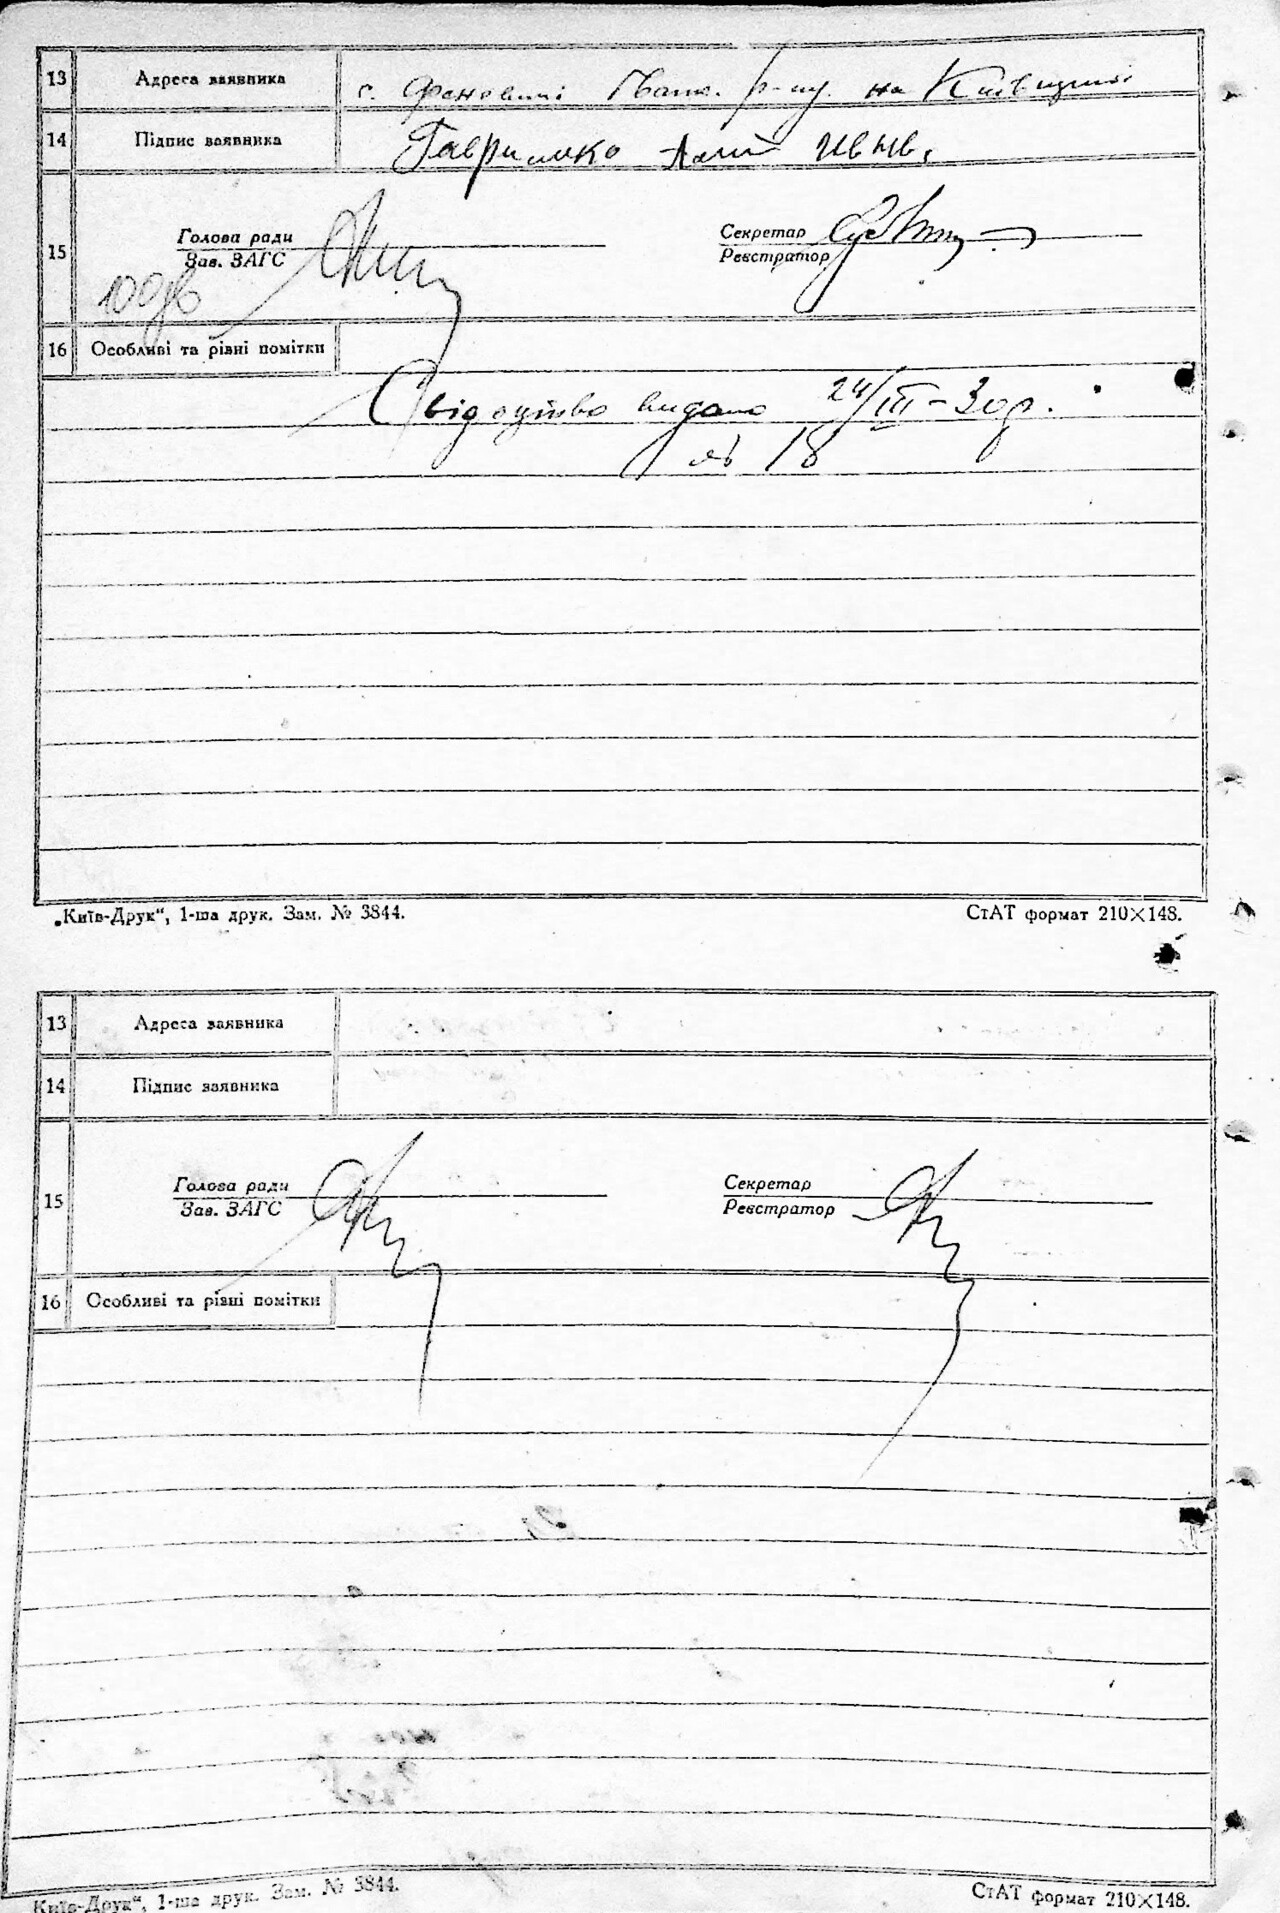 13 Адреса заявника с. р-ну. на Київщині
14 Підпис заявника Гаврилико
Голова ради Секретар
15
Зав. ЗАГС Реєстратор
16 Особливі та різні помітки
Свідоцтво видано 24/III-30р.
№ 18
„Київ-Друк“, 1-ша друк. Зам. № 3844. СтАТ формат 210×148.
13 Адреса заявника
14 Підпис заявника
Голова ради Секретар
15
Зав. ЗАГС Реєстратор
16 Особливі та різні помітки
Київ-Друк“, 1-ша друк. Зам. № 3844. СтАТ формат 210×148.